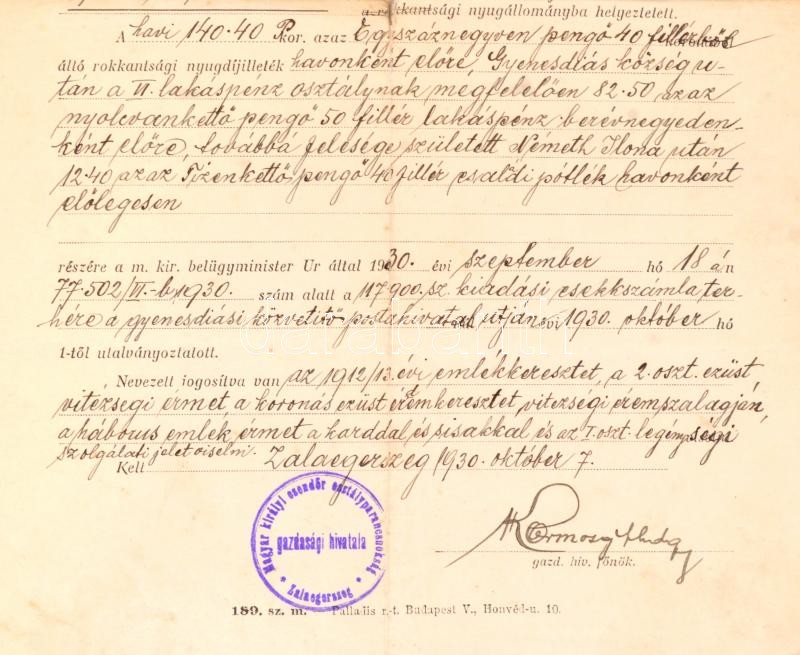 a rokkantsági nyugállományba helyeztetett.
A havi 140·40 P kor. azaz Egyszáznegyven pengő 40 fillérből
álló rokkantsági nyugdíjilleték havonként előre, Gyenesdiás község u-
tán a VI. lakáspénz osztálynak megfelelően 82·50 azaz
nyolcvankettő pengő 50 fillér lakáspénz bérévnegyeden-
ként előre, továbbá felesége született Németh Ilona után
12·40 azaz Tizenkettő pengő 40 fillér családi pótlék havonként
előlegesen
részére a m. kir. belügyminister Ur által 1930. évi szeptember hó 18 án
77·502/VI.-b, 1930. szám alatt a 117900. sz. kiadási csekkszámla ter-
hére a gyenesdiási közvetitő postahivatal utján évi 1930. október hó
1-től utalványoztatott.
Nevezett jogosítva van az 1912/13. évi emlékkeresztet, a 2. oszt. ezüst
vitézségi érmet, a koronás ezüst érdemkeresztet, vitézségi érem szalagján,
a háborus emlék érmet a karddal és sisakkal és az I. oszt. legénységi
szolgálati jelet viselni.
Kelt Zalaegerszeg, 1930. október 7.
Magyar királyi csendőr osztályparancsnokság
gazdasági hivatala
Zalaegerszeg
gazd. hiv. főnök.
189. sz. m. — Palladis r.-t. Budapest V., Honvéd-u. 10.